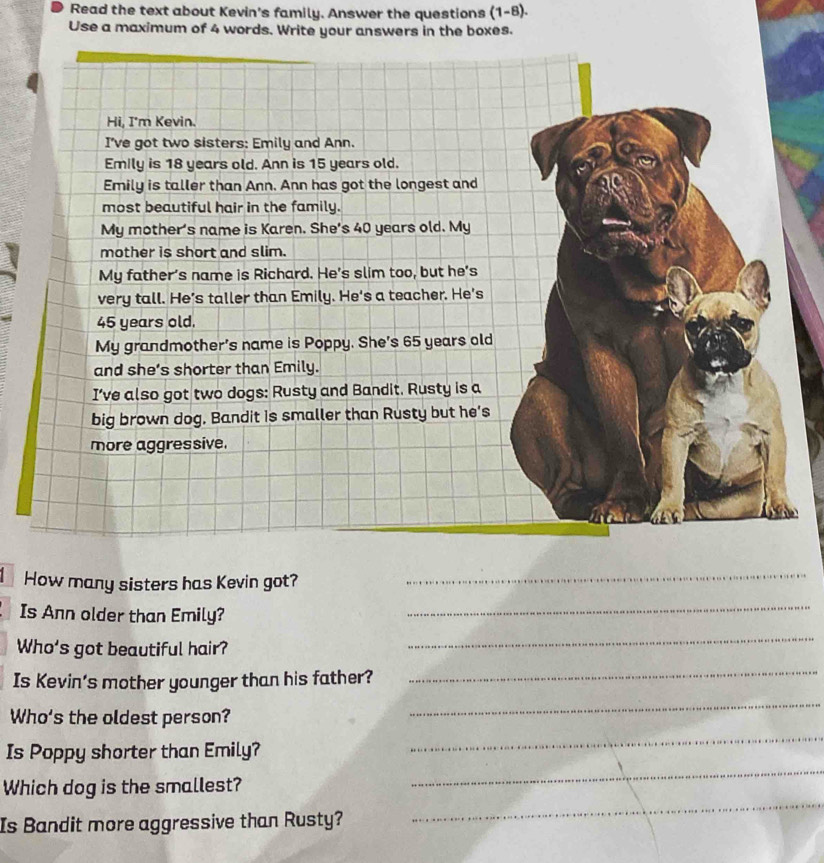 Read the text about Kevin's family. Answer the questions (1-8).
Use a maximum of 4 words. Write your answers in the boxes.
Hi, I'm Kevin.
I've got two sisters: Emily and Ann.
Emily is 18 years old. Ann is 15 years old.
Emily is taller than Ann. Ann has got the longest and
most beautiful hair in the family.
My mother's name is Karen. She's 40 years old. My
mother is short and slim.
My father's name is Richard. He's slim too, but he's
very tall. He's taller than Emily. He's a teacher. He's
45 years old.
My grandmother's name is Poppy. She's 65 years old
and she's shorter than Emily.
I've also got two dogs: Rusty and Bandit. Rusty is a
big brown dog. Bandit is smaller than Rusty but he's
more aggressive.
1 How many sisters has Kevin got?
Is Ann older than Emily?
Who's got beautiful hair?
Is Kevin's mother younger than his father?
Who's the oldest person?
Is Poppy shorter than Emily?
Which dog is the smallest?
Is Bandit more aggressive than Rusty?